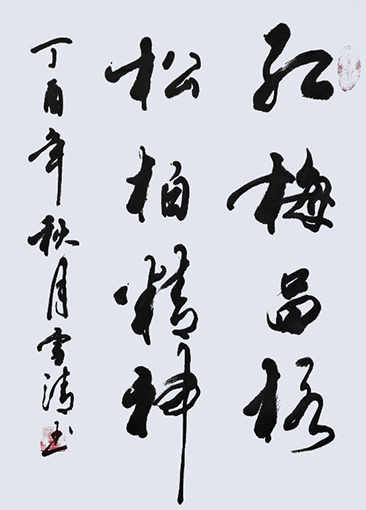 红梅品格
松柏精神
丁酉年秋月雪清玉